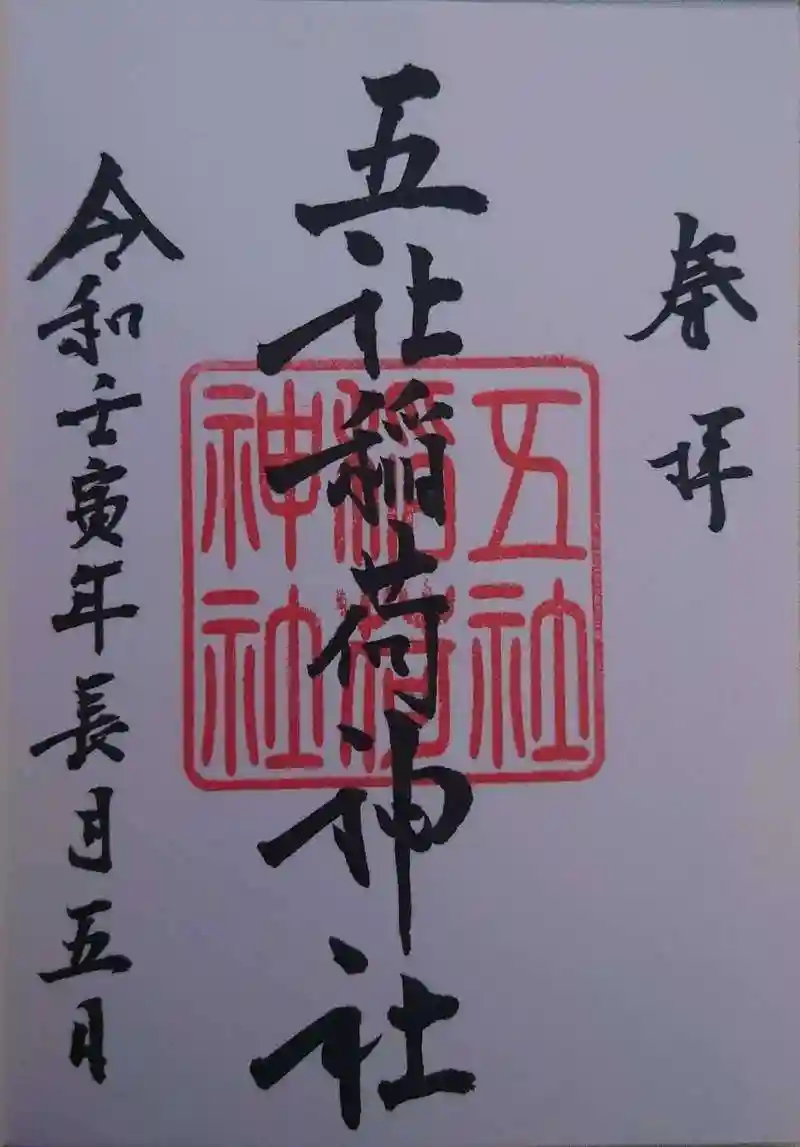 奉拝
五社稲荷神社
五社
稲荷
神社
令和壬寅年長月五日